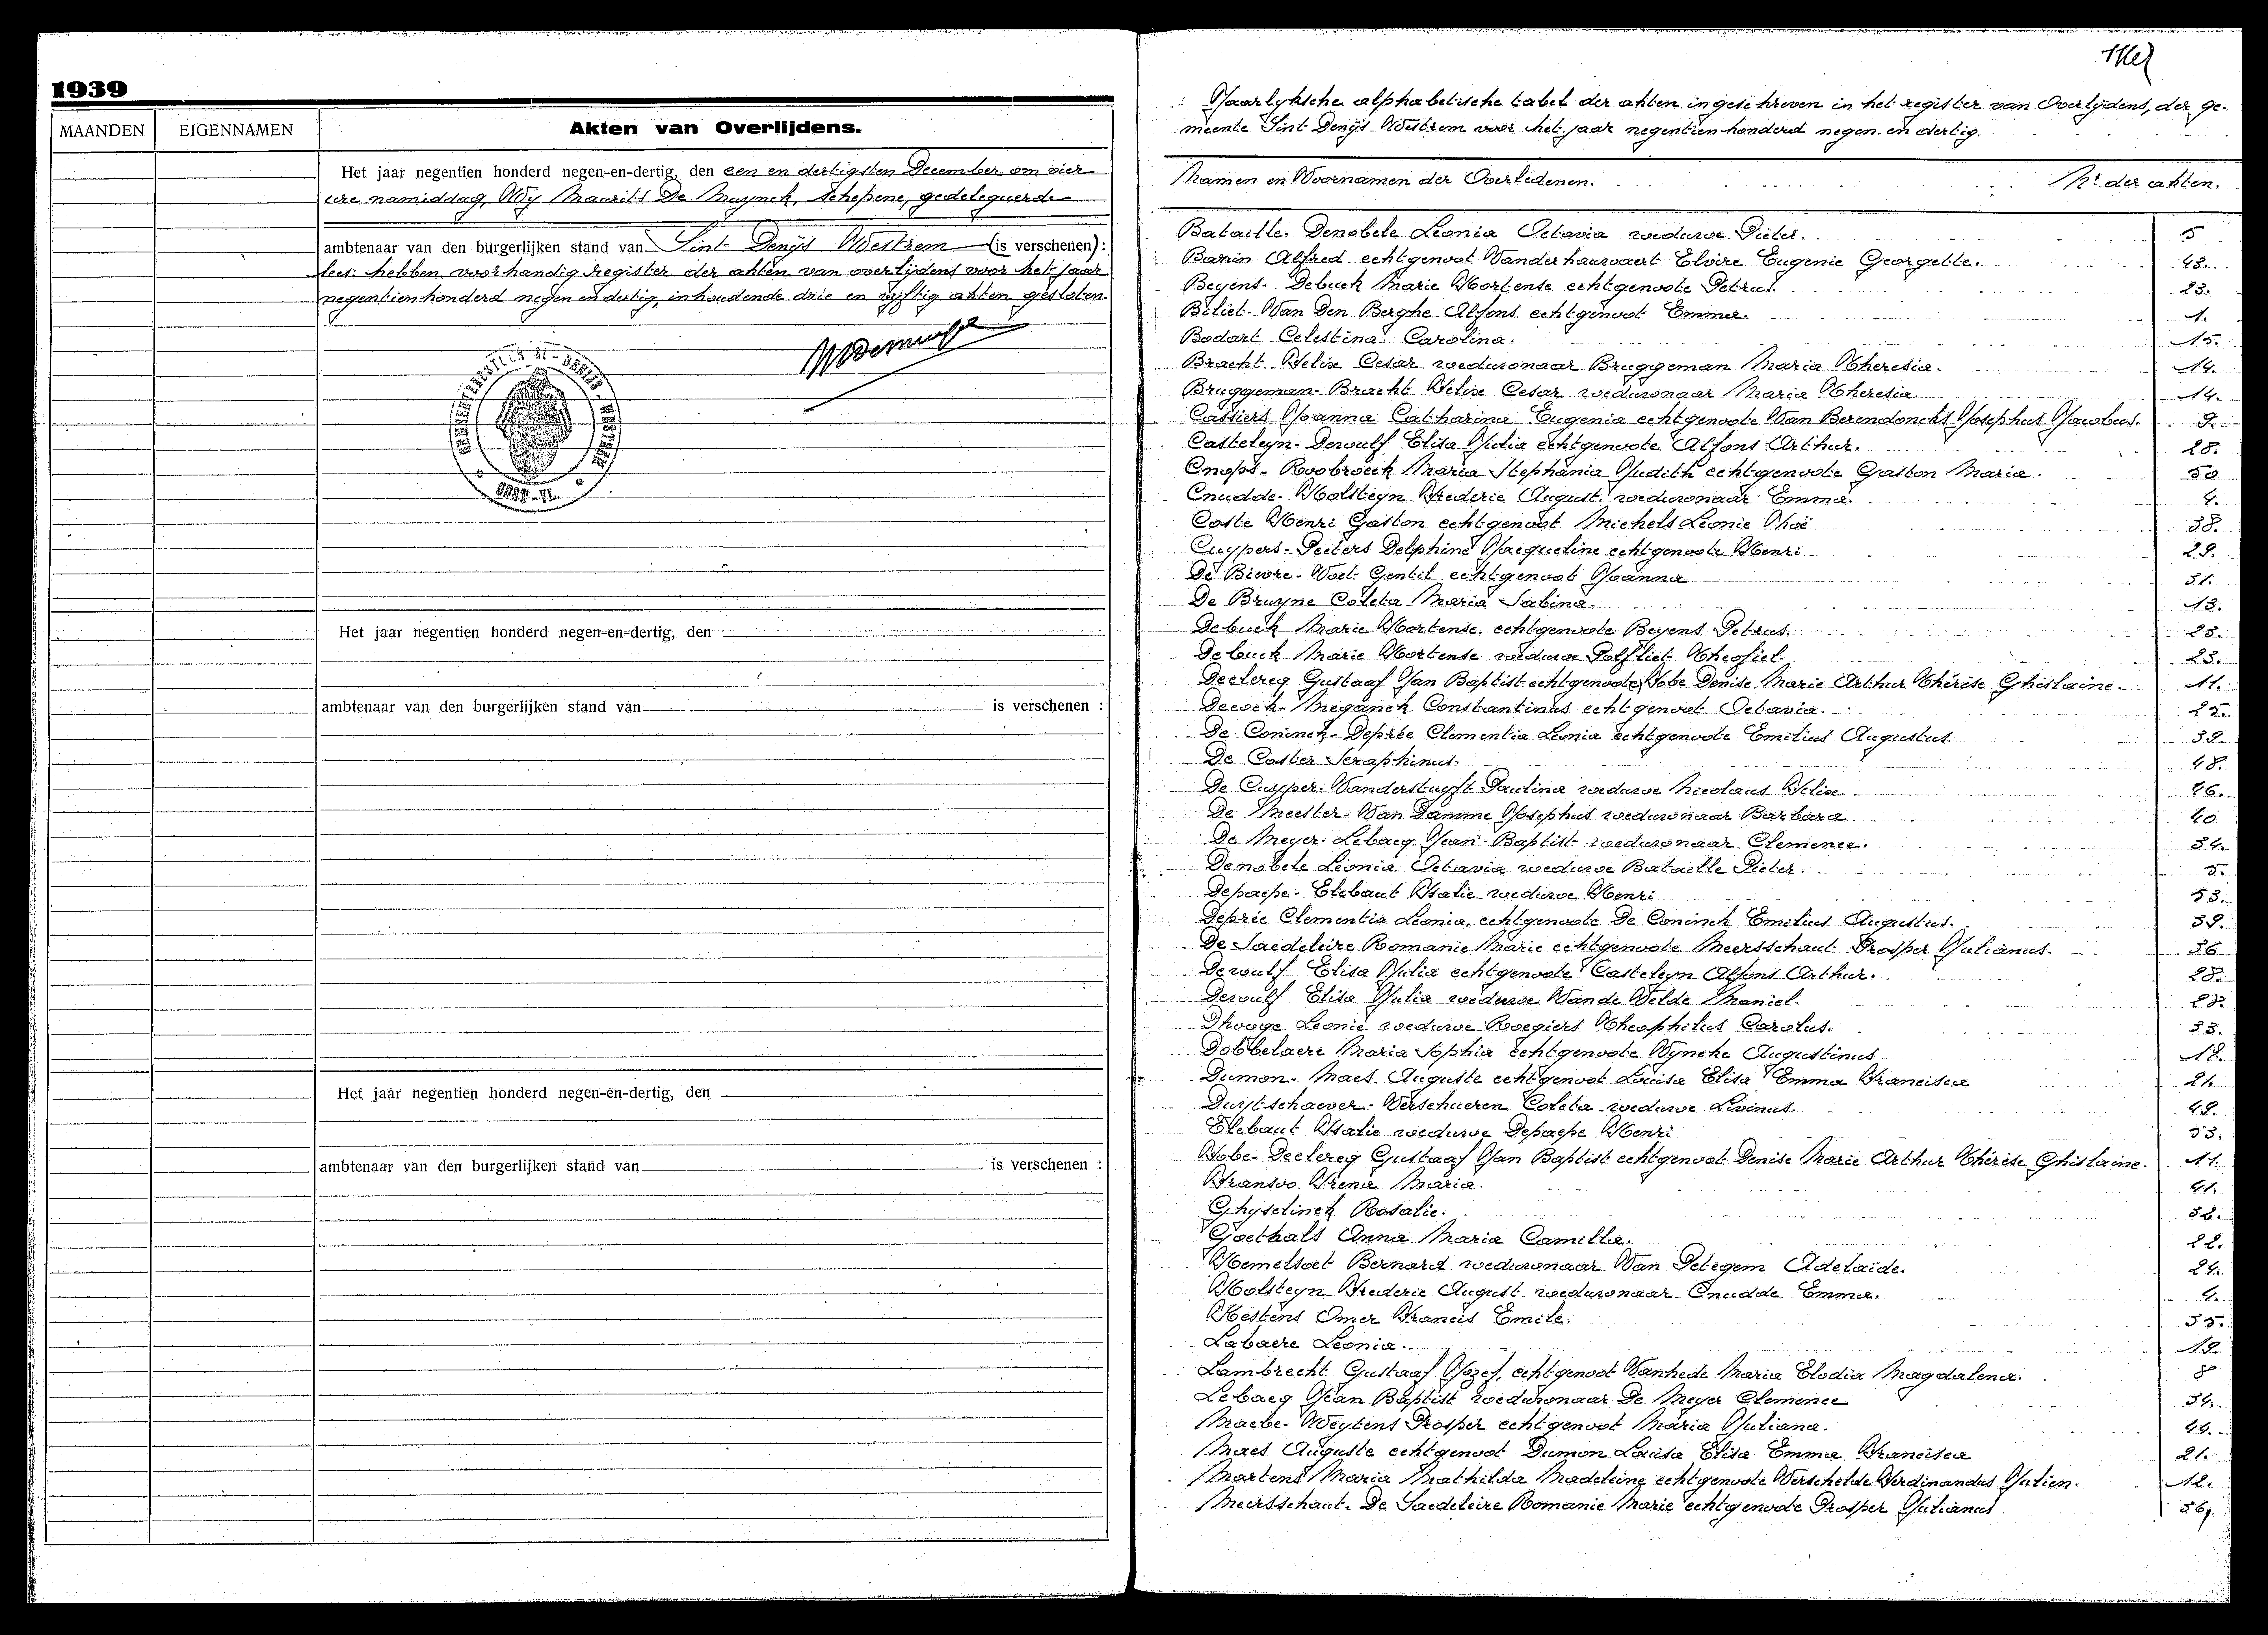 1939
MAANDEN EIGENNAMEN Akten van Overlijdens.
Het jaar negentien honderd negen-en-dertig, den een en dertigsten December om vier
ure namiddag, Wy Maurits De Muynck, Schepene, gedelegueerde
ambtenaar van den burgerlijken stand van Sint Denijs Westrem (is verschenen):
lees: hebben voorhandig register der akten van overlijdens voor het jaar
negentienhonderd negen en dertig, inhoudende drie en vijftig akten gesloten.
Het jaar negentien honderd negen-en-dertig, den
ambtenaar van den burgerlijken stand van is verschenen :
Het jaar negentien honderd negen-en-dertig, den
ambtenaar van den burgerlijken stand van is verschenen :
Jaarlyksche alphabetische tabel der akten ingeschreven in het register van Overlydens, der ge-
meente Sint Denijs-Westrem voor het jaar negentienhonderd negen en dertig.
Namen en Voornamen der Overledenen. Nr. der akten.
Bataille. Denobele Leonia Octavia weduwe Pieter. 5
Barin Alfred echtgenoot Vanderhauwaert Elvire Eugenie Georgette. 43.
Beyens-Debuck Marie Hortense echtgenoote Petrus. 23.
Biliet-Van Den Berghe Alfons echtgenoot Emma. 1.
Bodart Celestina Carolina. 15.
Bracht Felix Cesar weduwnaar Bruggeman Maria Theresia. 14.
Bruggeman-Bracht Felix Cesar weduwnaar Maria Theresia. 14.
Cassiers Joanna Catharina Eugenia echtgenoote Van Berendoncks Josephus Jacobus. 9.
Casteleyn-Dewulf Elisa Julia echtgenoote Alfons Arthur. 28.
Cnops-Roobroeck Maria Stephania Judith echtgenoote Gaston Maria. 50
Cnudde-Holsteyn Frederic August weduwnaar Emma. 4.
Coste Henri Gaston echtgenoot Michels Leonie 38.
Cuypers-Peeters Delphine Jacqueline echtgenoote Henri 29.
De Bievre-Voet Gentil echtgenoot Joanna 31.
De Bruyne Coleta Maria Sabina. 13.
Debuck Marie Hortense echtgenoote Beyens Petrus. 23.
Debuck Marie Hortense weduwe Polfliet Theofiel. 23.
Declercq Gustaaf Jan Baptist echtgenoote Fobe Denise Marie Arthur Thérèse Ghislaine. 11.
Decock-Meganck Constantinus echtgenoot Octavia. 25.
De Coninck-Deprée Clementia Leonia echtgenoote Emilius Augustus. 39.
De Coster Seraphinus. 48.
De Cuyper-Vanderstuyft Paulina weduwe Nicolaus Felix 26.
De Meester-Van Damme Josephus weduwnaar Barbara. 40
De Meyer-Lebacq Jean-Baptist weduwnaar Clemence. 34.
Denobele Leonia Octavia weduwe Bataille Pieter. 5.
Depaepe-Elebaut Italie weduwe Henri 53.
Deprée Clementia Leonia, echtgenoote De Coninck Emilius Augustus. 39.
De Saedeleire Romanie Marie echtgenoote Meersschaut Prosper Julianus. 36
Dewulf Elisa Julia echtgenoote Casteleyn Alfons Arthur. 28.
Dewulf Elisa Julia weduwe Vande Velde Maniel. 28.
Dhooge Leonie weduwe Roegiers Theophilus Carolus. 33.
Dobbelaere Maria Sophia echtgenoote Wyncke Augustinus
Dumon-Maes Auguste echtgenoot Louisa Elisa Emma Francisca 21.
Duytschaever-Verschueren Coleta weduwe Livinus. 49.
Elebaut Italie weduwe Depaepe Henri 53.
Fobe-Declercq Gustaaf Jan Baptist echtgenoot Denise Marie Arthur Thérèse Ghislaine. 11.
Fransoo Irena Maria. 41.
Ghyselinck Rosalie. 32.
Goethals Anna Maria Camilla. 22.
Hemelsoet Bernard weduwnaar Van Petegem Adelaide. 24.
Holsteyn Frederic August weduwnaar Cnudde Emma. 4.
Kestens Omer Francis Emile. 35.
Labaere Leonia. 19.
Lambrecht Gustaaf Jozef, echtgenoot Vanhede Maria Elodia Magdalena. 8
Lebacq Jean Baptist weduwnaar De Meyer Clemence 34.
Maebe-Weytens Prosper echtgenoot Maria Juliana. 44.
Maes Auguste echtgenoot Dumon Louisa Elisa Emma Francisca 21.
Martens Maria Mathilda Madeleine echtgenoote Verschelde Ferdinandus Julien. 12.
Meersschaut-De Saedeleire Romanie Marie echtgenoote Prosper Julianus 36,